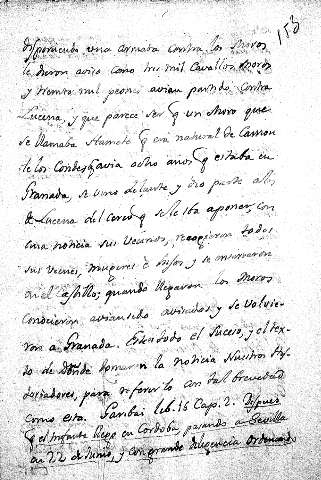 153
disponiendo una armada contra los Moros
le dieron aviso como tres mil Cavallos Moros
y treinta mil peones avian partido contra
Lucena, y que parece ser q un Moro que
se llamaba Hamete q era natural de Carrion
de los Condes q avia ocho años q estaba en
Granada, se vino delante y dio parte a los
de Lucena del Cerco q se le iba aponer, con
cuia noticia sus Vecinos, recogieron todos
sus vienes, mugeres e hijos y se
en el Castillo; quando llegaron los Moros
conocieron aviansido avisados y se volvie-
ron a Granada. Este todo el suceso, y el tex-
to de donde tomaron la noticia Nuestros His-
toriadores, para referirla con tal brevedad
como esta. Garibai lib. 16 Cap. 2. Despues
q el Infante en Cordoba pasando a Sevilla
en 22 de Junio, y con grande diligencia ordenando